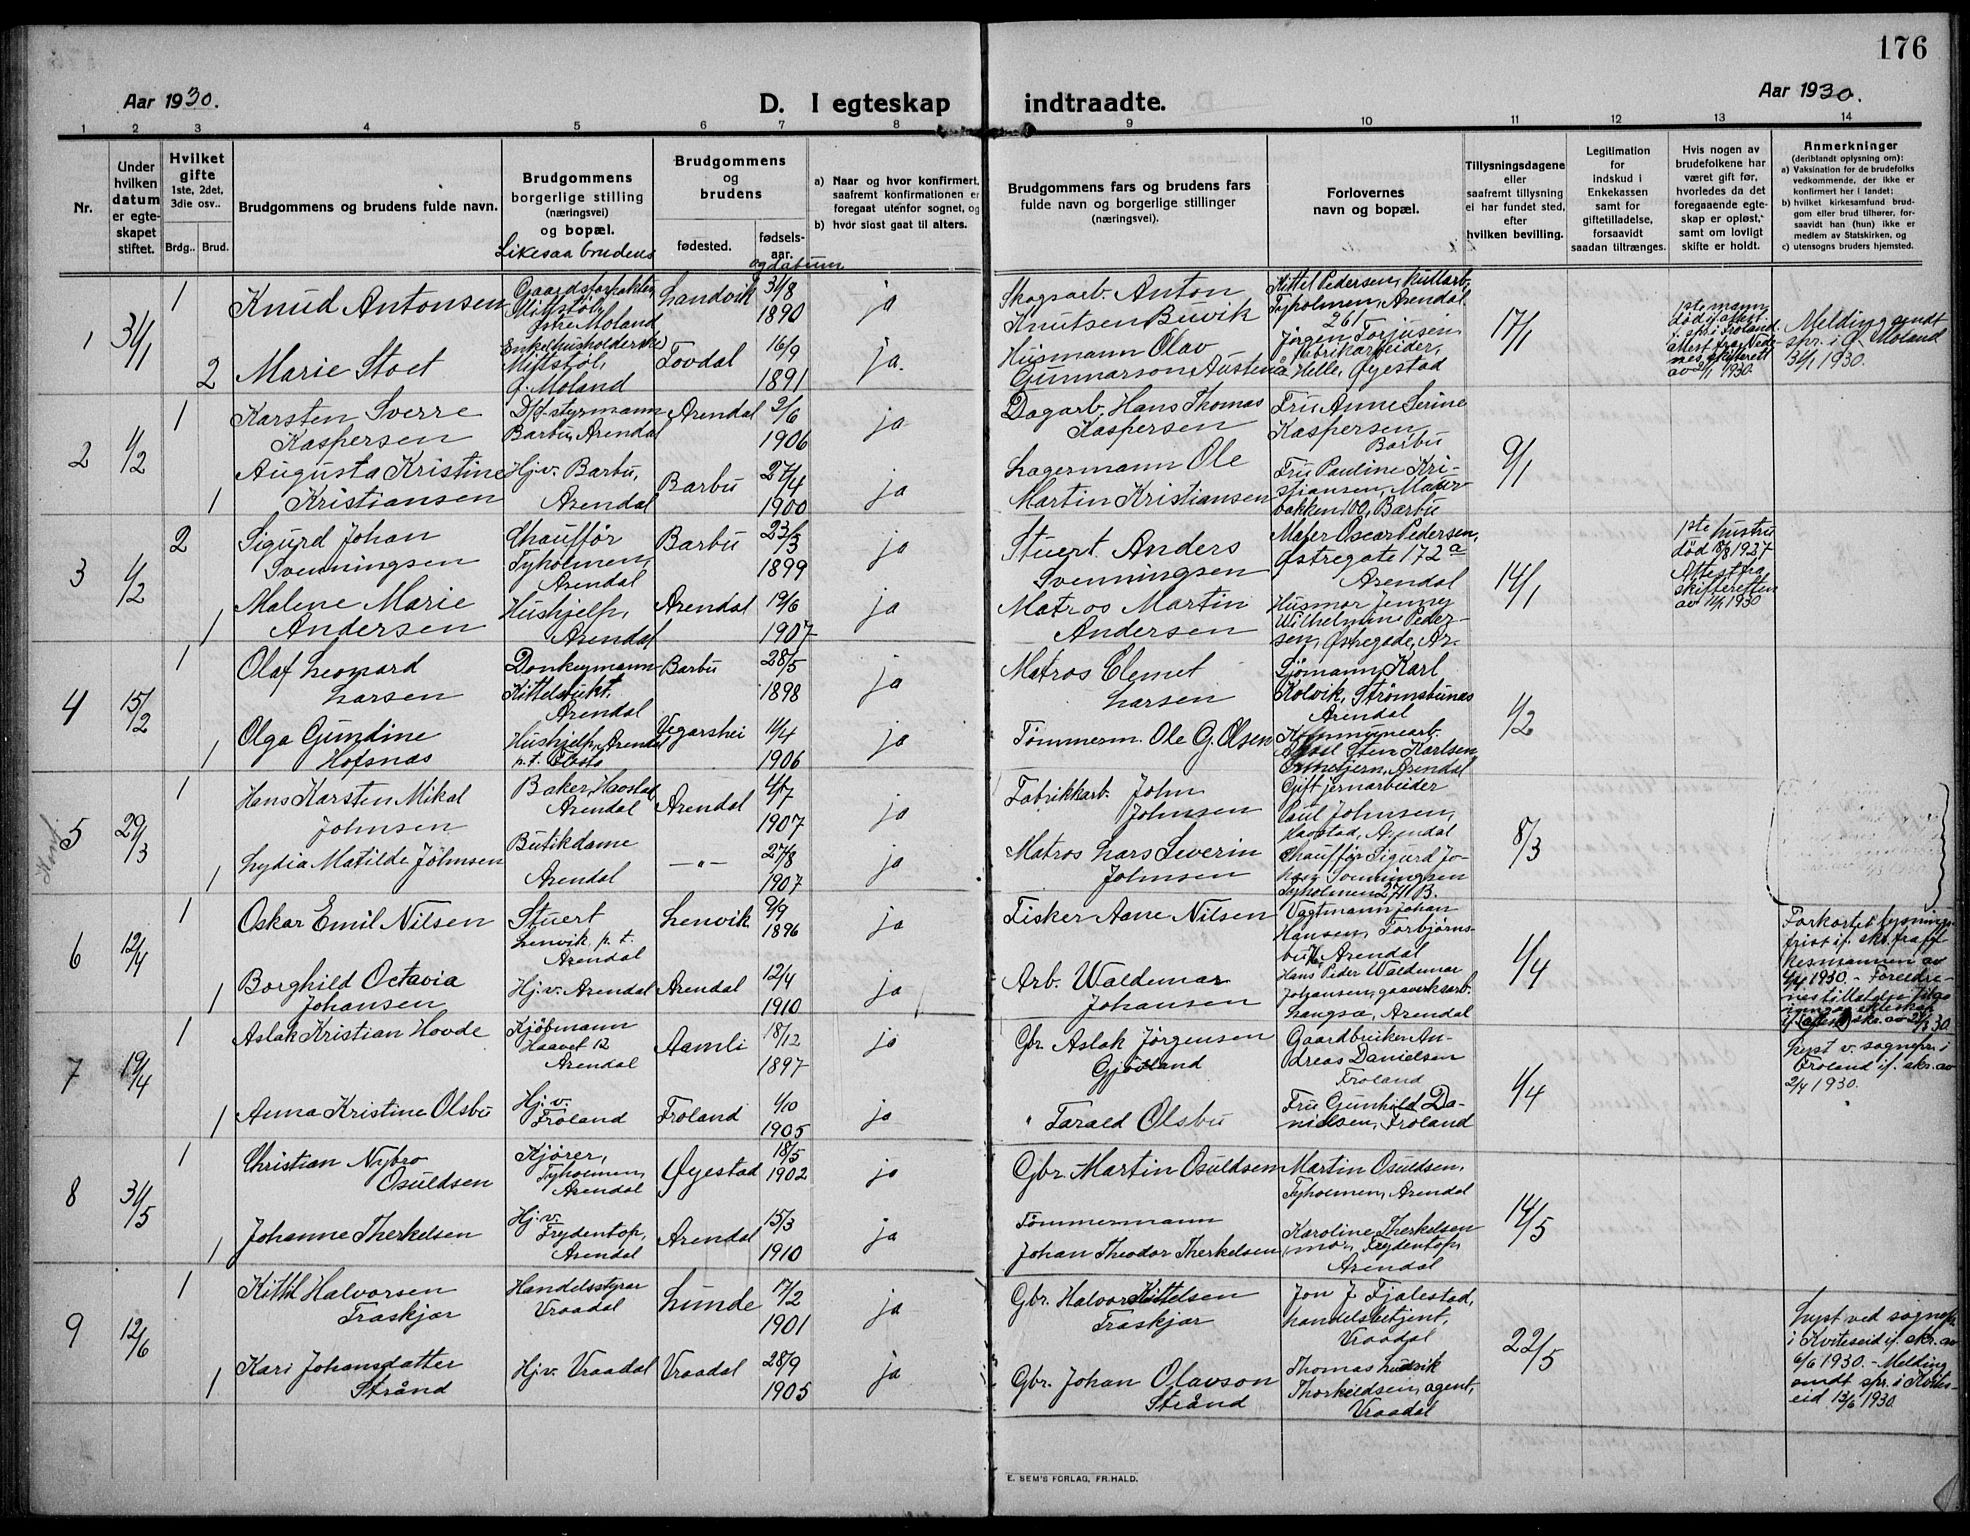 176
Aar 1930.
D. I egteskap indtraadte.
Aar 1930.
1 2 3 4 5 6 7 8 9 10 11 12 13 14
Nr.
Under hvilken datum er egteskapet stiftet.
Hvilket gifte 1ste, 2det, 3die osv..
Brdg.. Brud.
Brudgommens og brudens fulde navn.
Brudgommens borgerlige stilling (næringsvei) og bopæl.
Likesaa brudens
Brudgommens og brudens
fødested.
fødsels-aar.
og datum
a) Naar og hvor konfirmert, saafremt konfirmationen er foregaat utenfor sognet, og
b) hvor sidst gaat til alters.
Brudgommens fars og brudens fars fulde navn og borgerlige stillinger (næringsvei).
Forlovernes navn og bopæl.
Tillysningsdagene eller saafremt tillysning ei har fundet sted, efter hvilken bevilling.
Legitimation for indskud i Enkekassen samt for giftetilladelse, forsaavidt saadan tiltrænges.
Hvis nogen av brudefolkene har været gift før, hvorledes da det foregaaende egteskap er opløst, samt om lovligt skifte er holdt.
Anmerkninger (deriblandt oplysning om):
a) Vaksination for de brudefolks vedkommende, der ikke er konfirmert her i landet;
b) hvilket kirkesamfund brudgom eller brud tilhører, forsaavidt han (hun) ikke er medlem av Statskirken, og
c) utensogns bruders hjemsted.
1
31/1
1
Knud Antonsen
Gaardsforpakter,
Mittstøl,
Østre Moland
Landvik
31/8
1890
ja
Skogsarb. Anton
Knutsen Buvik
Kittel Pedersen, kullarb.,
Tyholmen, Arendal
261
17/1
2
Marie Stoet
Enke, husholderske
Mittstøl,
Ø. Moland
Tovdal
16/9
1891
ja.
Husmann Olav
Gunnarson Austenå
Jørgen Torjusen
fabrikarbeider,
Helle, Øyestad
1ste mann
død
i Froland.
attest fra Nedenes skifterett
av 21/1 1930.
Melding sendt
spr. i Ø. Moland
31/1 1930.
2
1/2
1
Karsten Sverre
Kaspersen
D/f styrmann
Barbu, Arendal
Arendal
2/6
1906
ja
Dagarb. Hans Thomas
Kaspersen
Fru Anne Serine
Kaspersen
Barbu
9/1
1
Augusta Kristine
Kristiansen
Hj.v. Barbu,
Arendal
Barbu
27/4
1900
ja
Lagermann Ole
Martin Kristiansen
Fru Pauline Kri-
stiansen, Maur-
bakken 100, Barbu
3
1/2
2
Sigurd Johan
Svenningsen
Chauffør
Tyholmen,
Arendal
Barbu
23/3
1899
ja
Stuert Anders
Svenningsen
Maler Oscar Pedersen,
Østregate 172 a
Arendal
14/1
1ste hustru
død 18/8 1927
Attest fra
skifteretten
av 11/1 1930
1
Malene Marie
Andersen
Hushjelp,
Arendal
Arendal
19/6
1907
ja
Matros Martin
Andersen
Husmor Jenny
Wilhelmine Peder-
sen, Østregade, Ar.
4
15/2
1
Olaf Leonard
Larsen
Donkeymann
Kittelsbukt.
Arendal
Barbu
28/5
1898
ja
Matros Clemet
Larsen
Sjømann Karl
Kolvik, Strømsbunes
Arendal
1/2
1
Olga Gundine
Hofsnæs
Hushjelp, Arendal
p.t.
Vegarshei
11/4
1906
ja
Tømmerm. Ole G. Olsen
Kommunearb.
Sten Karlsen
Arendal
5
29/3
1
Hans Karsten Mikal
Johnsen
Baker, Havstad
Arendal
Arendal
4/7
1907
ja
Fabrikkarb. John
Johnsen
Gift jernarbeider
Paul Johnsen,
Havstad, Arendal
8/3
1
Lydia Matilde Johnsen
Butikdame
Arendal
—"—
27/8
1907
ja
Matros Lars Severin
Johnsen
Chauffør Sigurd Jo-
han Svenningsen
Tyholmen 271 B.
6
12/4
1
Oskar Emil Nilsen
Stuert
Lenvik p. t.
Arendal
Lenvik
9/9
1896
ja
Fisker Aane Nilsen
Vagtmann Johan
Hansen, Torbjørns-
bu, Arendal
1/4
1
Borghild Octavia
Johansen
Hj.v. Arendal
Arendal
12/4
1910
ja
Arb. Waldemar
Johansen
Hans Peder Waldemar
Johansen, gasverksarb.
Langsæ, Arendal
Forkortet lysnings-
frist if. skr. fra fyl-
kesmannen av
1930. - Foreldre-
nes tillatelse til
av 2/3 30.
7
19/4
1
Aslak Kristian Hovde
Kjøbmann
Haavet 12
Arendal
Aamli
18/12
1897
ja
Gbr. Aslak Jørgensen
Gjøvland
Gaardbruker An-
dreas Danielsen
Froland
1/4
Lyst v. sognepr. i
Froland if. skr. av
2/4 1930.
1
Anna Kristine Olsbu
Hj.v.
Froland
Froland
1/10
1905
ja
" Tarald Olsbu
Fru Gunhild Da-
nielsen, Froland
8
31/5
1
Christian Nybro
Osuldsen
Kjører,
Tyholmen,
Arendal
Øyestad
18/5
1902
ja
Gbr. Martin Osuldsen
Martin Osuldsen,
Tyholmen, Arendal
14/5
1
Johanne Therkelsen
Hj.v.
Frydentop,
Arendal
Arendal
15/3
1910
ja
Tømmermann
Johan Theodor Therkelsen
Karoline Therkelsen
(mor, Frydentop,
Arendal
9
12/6
1
Kittil Halvorsen
Traskjær
Handelsstyrer
Vraadal
Lunde
17/2
1901
ja
Gbr. Halvor Kittelsen
Traskjær
Jon J. Fjalestad,
handelsbetjent,
Vraadal
22/5
1
Kari Johansdatter
Strånd
Hj.v. Vraadal
Vraadal
28/9
1905
ja
Gbr. Johan Olavson
Strånd
Thomas Ludvik
Thorkildsen, agent,
Vraadal
Lyst ved sognepr.
i Kviteseid if. skr. av
6/6 1930. - Melding
sendt spr. i Kvites-
eid 13/6 1930.
E. SEM'S FORLAG, FR.HALD.